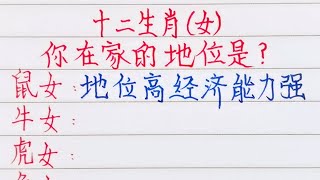 十二生肖(女)
你在家的地位是?
鼠女:地位高经济能力强
牛女:
虎女: